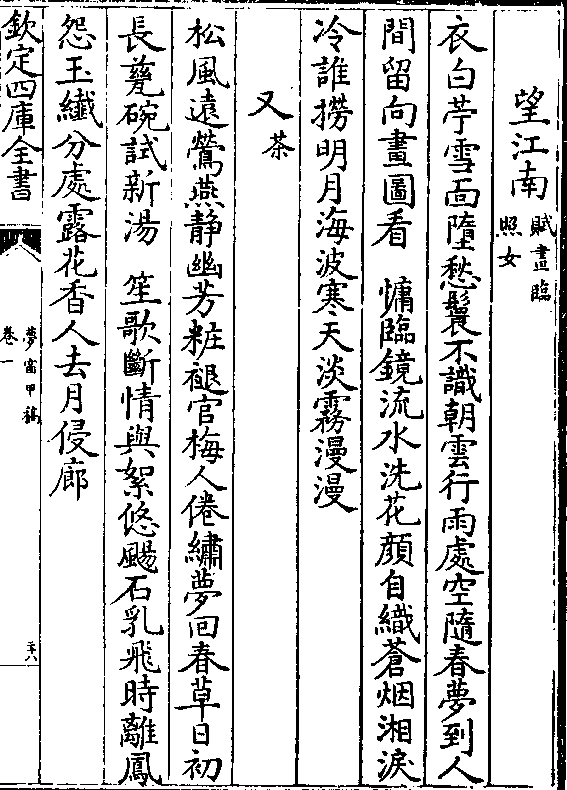 望江南賦畫臨照女
衣白苧雪面墮愁鬟不識朝雲行雨處空隨春夢到人
間留向畫圖看　慵臨鏡流水洗花顏自織蒼烟湘淚
冷誰撈明月海波寒天淡霧漫漫
又茶
松風遠鶯燕静幽芳粧褪宫梅人倦繡夢回春草日初
長甆碗試新湯　笙歌斷情與絮悠颺石乳飛時離鳳
怨玉纎分處露花香人去月侵廊
欽定四庫全書
夢窗甲稿
卷一